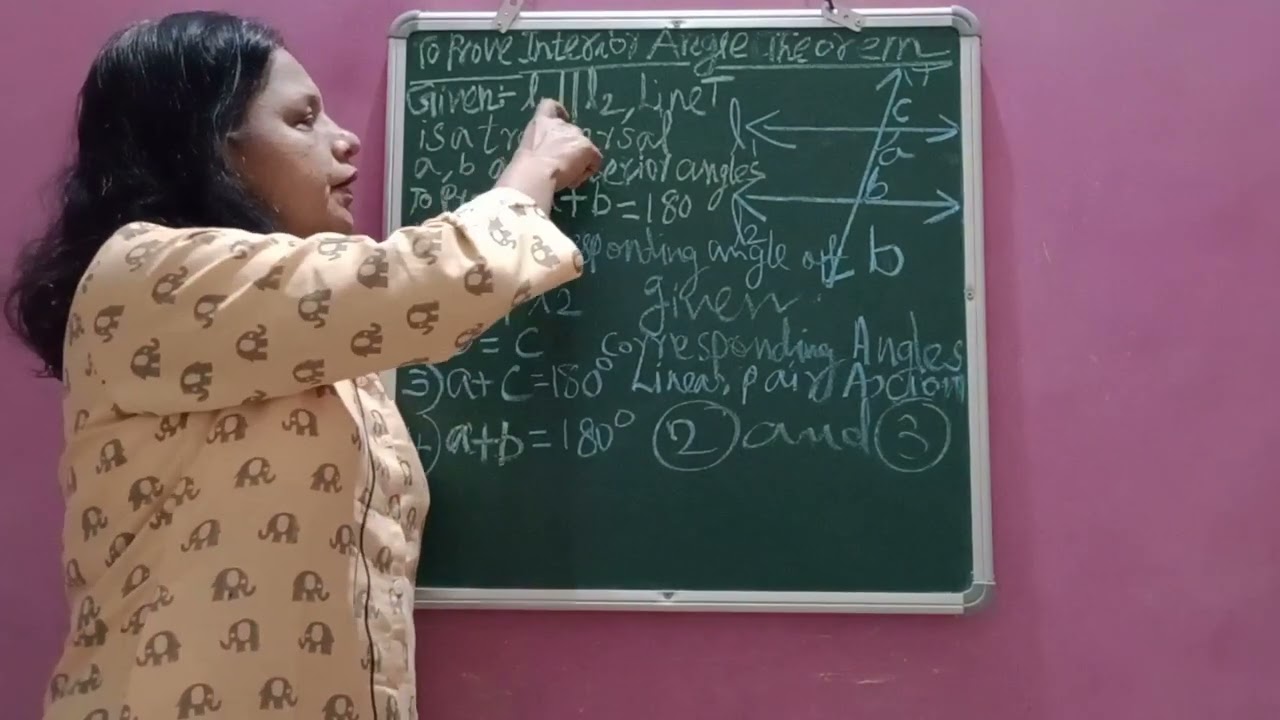 To Prove Interior Angle Theorem
Given:- l1 || l2, Line T
is a transversal
a, b interior angles
To a+b=180
angle of b
l2 given
= C corresponding Angles
3) a+C=180° Linear pair Axiom
a+b=180° 2 and 3
T
C
l1
a
b
l2